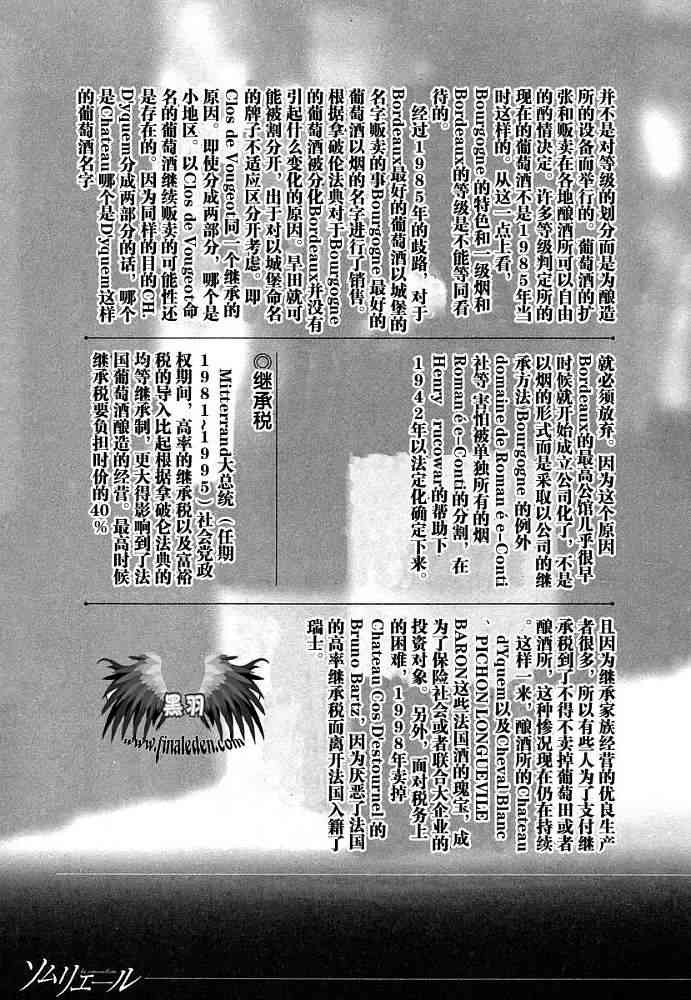 并不是对等级的划分而是为酿造
所的设备而举行的。葡萄酒的扩
张和贩卖在各地酿酒所可以自由
的酌情决定。许多等级判定所的
现在的葡萄酒不是1985年当
时这样的。从这一点上看，
Bourgogne 的特色和一级烟和
Bordeaux的等级是不能等同看
待的。
经过1985年的歧路，对于
Bordeaux最好的葡萄酒以城堡的
名字贩卖的事Bourgogne最好的
葡萄酒以烟的名字进行了销售。
根据拿破伦法典对于Bourgogne
的葡萄酒被分化Bordeaux并没有
引起什么变化的原因。早田就可
能被割分开，出于对以城堡命名
的牌子不适应区分开考虑。即
Clos de Vougeot同一个继承的
原因。即使分成两部分，哪个是
小地区。以Clos de Vougeot命
名的葡萄酒继续贩卖的可能性还
是存在的。因为同样的目的CH.
Dyquem分成两部分的话，哪个
是Chateau哪个是Dyquem这样
的葡萄酒名字
就必须放弃。因为这个原因
Bordeaux的最高公馆几乎很早
时候就开始成立公司化了，不是
以烟的形式而是采取以公司的继
承方法Bourgogne 的例外
domaine de Romanée-Conti
社等 害怕被单独所有的烟
Romanée-Conti的分割，在
Henry rucowar的帮助下
1942年以法定化确定下来。
◎继承税
Mitterraud大总统（任期
1981~1995）社会党政
权期间，高率的继承税以及富裕
税的导入比起根据拿破伦法典的
均等继承制，更大得影响到了法
国葡萄酒酿造的经营。最高时候
继承税要负担时价的40%
且因为继承家族经营的优良生产
者很多，所以有些人为了支付继
承税到了不得不卖掉葡萄田或者
酿酒所，这种惨况现在仍在持续
。这样一来，酿酒所的Chateau
d'Yquem以及Cheval Blanc
、PICHON LONGUEVILE
BARON这些法国酒的瑰宝，成
为了保险社会或者联合大企业的
投资对象。另外，面对税务上
的困难，1998年卖掉
Chateau Cos D'estournel 的
Bruno Bartz，因为厌恶了法国
的高率继承税而离开法国入籍了
瑞士。
黑羽
www.finaleden.com
ソムリエール